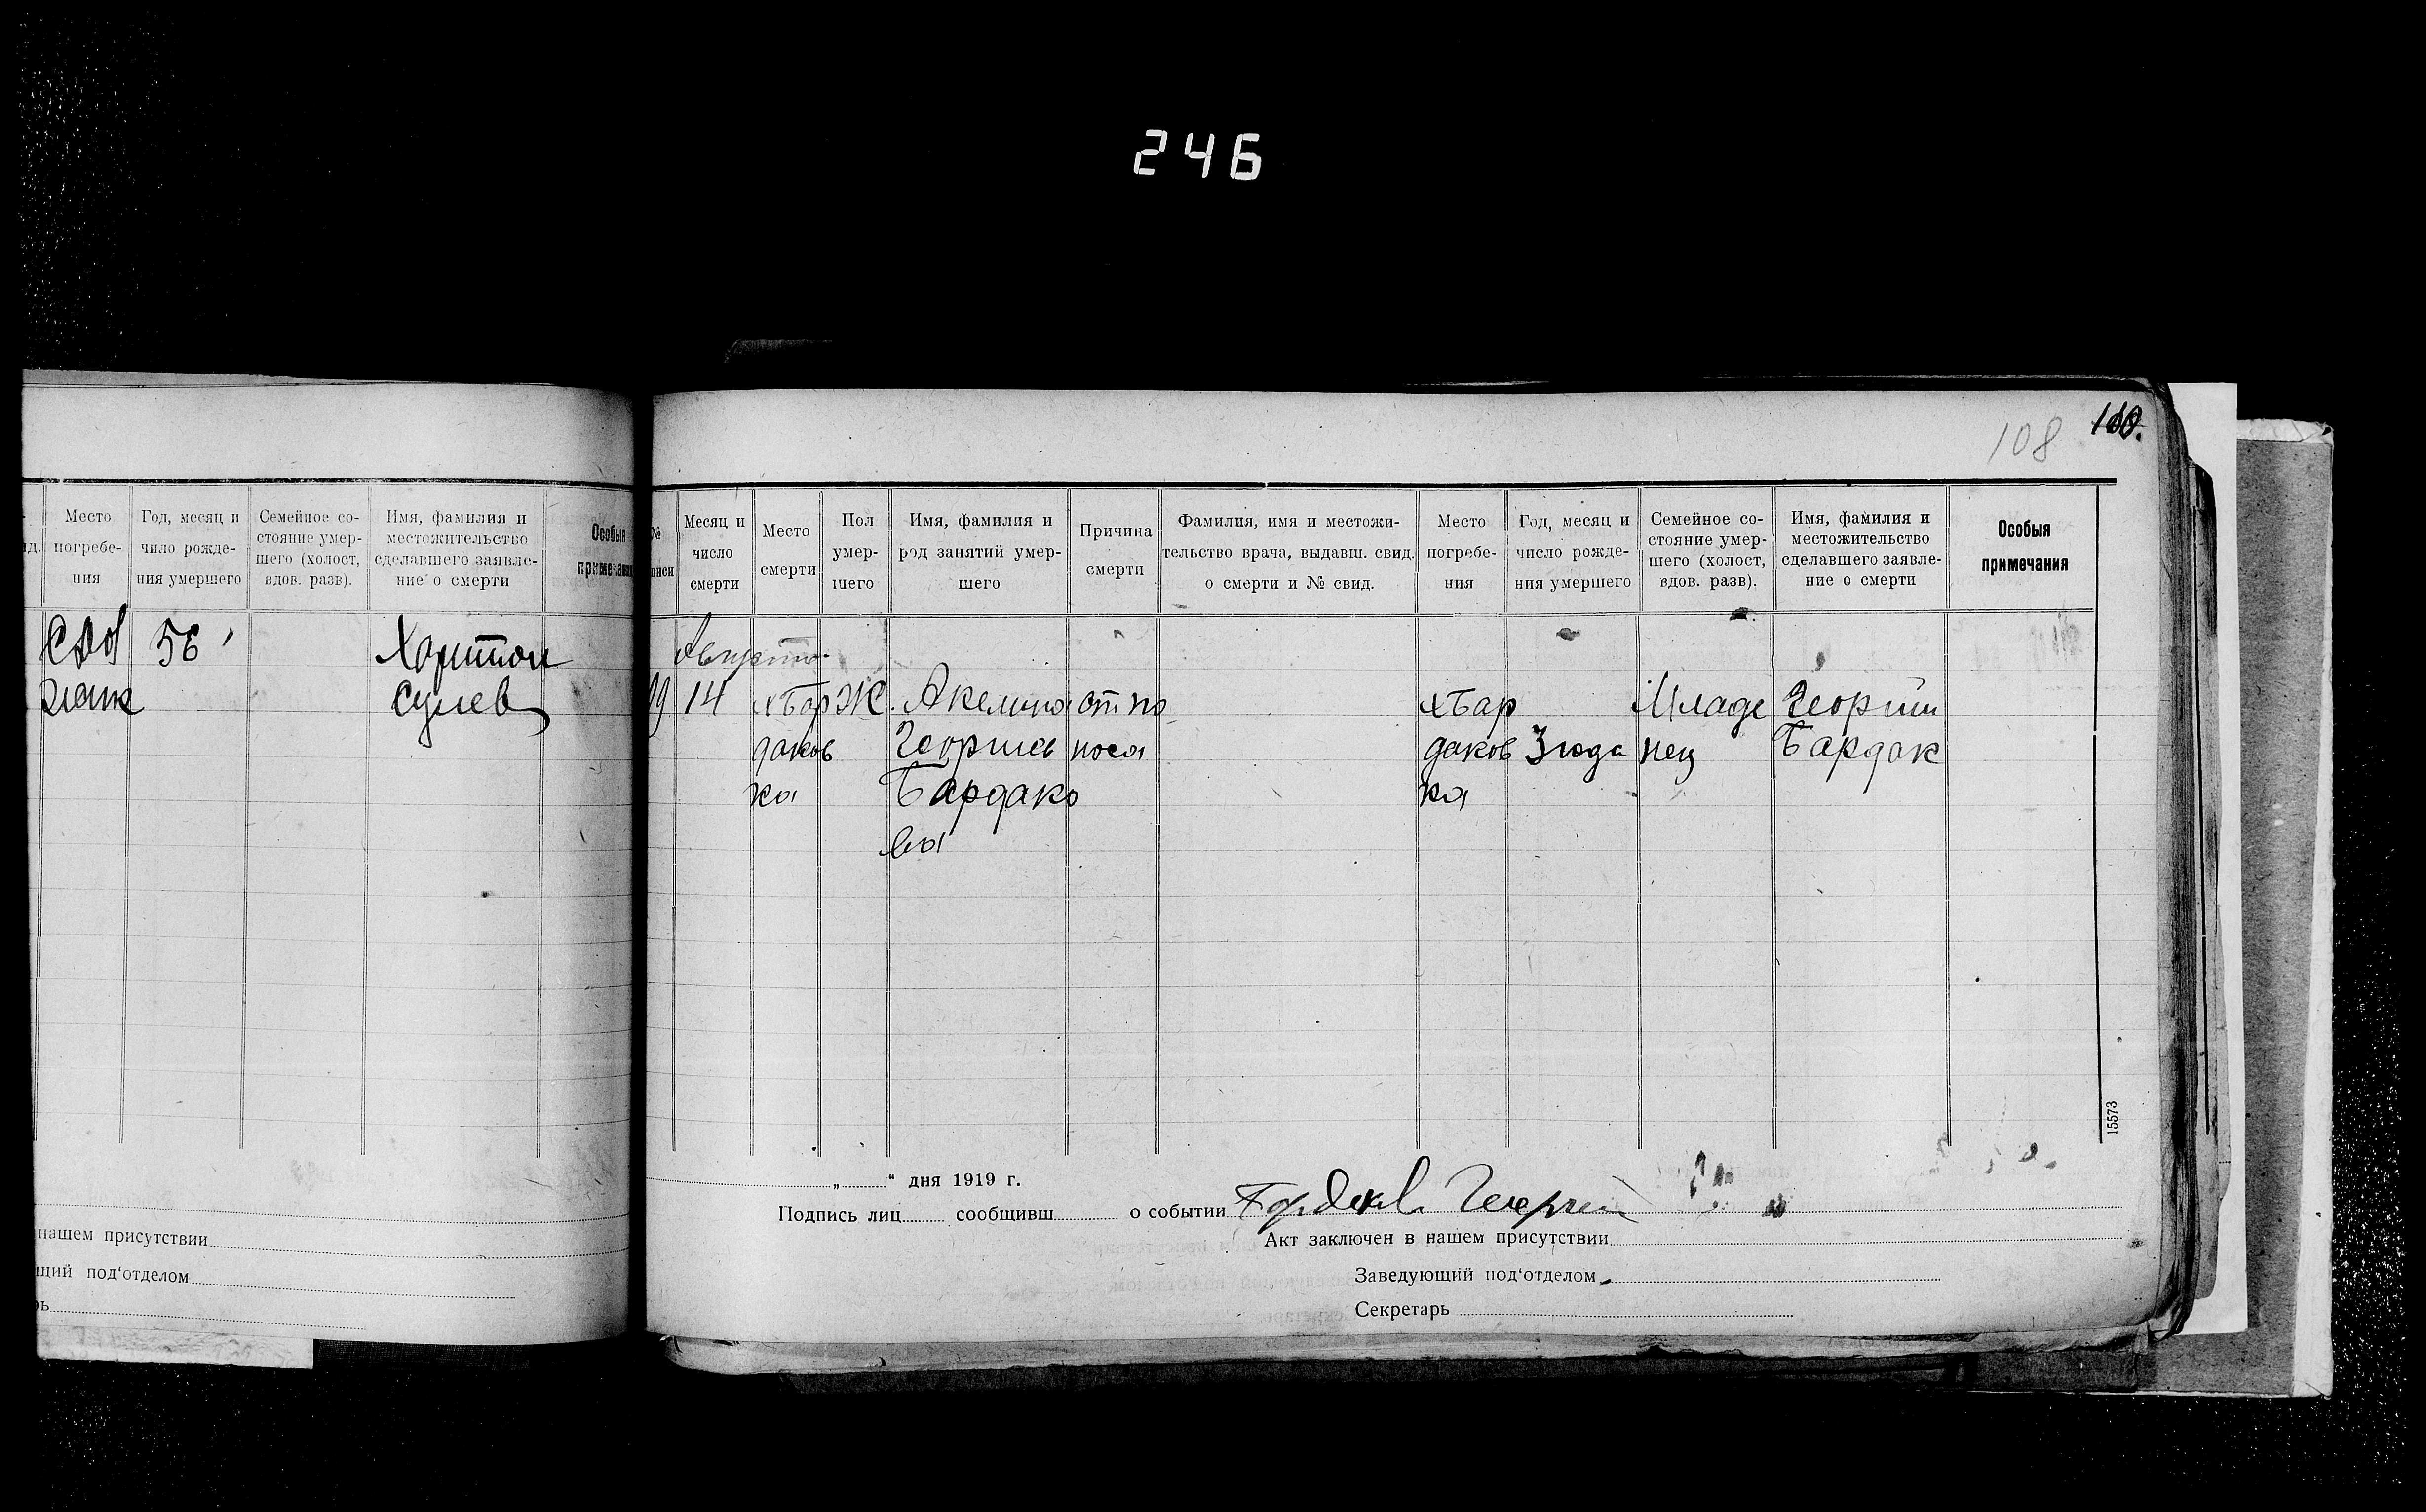 246
108
Место
погребе-
ния
Год, месяц и
число рожде-
ния умершего
Семейное со-
стояние умер-
шего (холост,
вдов. разв).
Имя, фамилия и
местожительство
сделавшего заявле-
ние о смерти
Особыя
примечания
56
Харитон
нашем присутствии
щий под‘отделом
№
писи
Месяц и
число
смерти
Место
смерти
Пол
умер-
шего
Имя, фамилия и
род занятий умер-
шего
Причина
смерти
Фамилия, имя и местожи-
тельство врача, выдавш. свид.
о смерти и № свид.
Место
погребе-
ния
Год, месяц и
число рожде-
ния умершего
Семейное со-
стояние умер-
шего (холост,
вдов. разв).
Имя, фамилия и
местожительство
сделавшего заявле-
ние о смерти
Особыя
примечания
Августа
14
хБар
даков
ка
Ж.
Акелина
Георгиев
Бардако
ва
от по
носа
хБар
даков
ка
3 года
Младе
нец
Георгий
Бардак
15573
„ “ дня 1919 г.
Подпись лиц сообщивш о событии Бардаков Георгий
Акт заключен в нашем присутствии
Заведующий под‘отделом
Секретарь